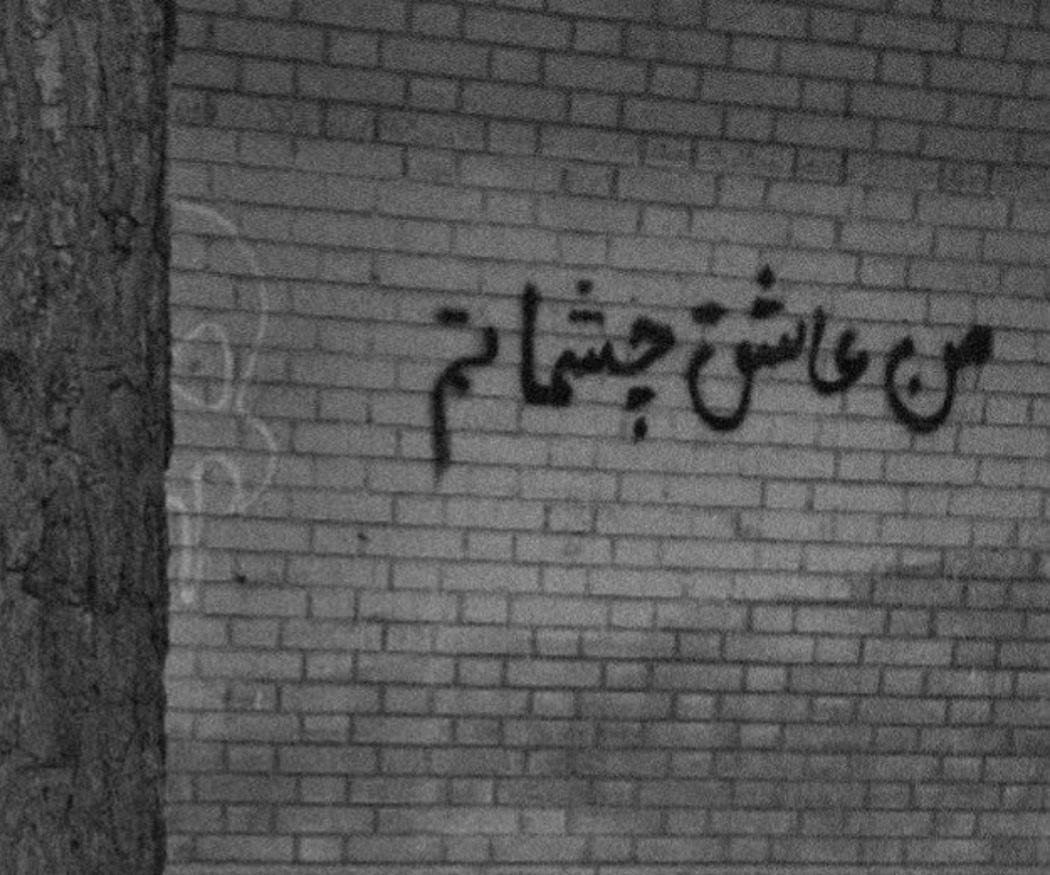 من عاشق چشماتم